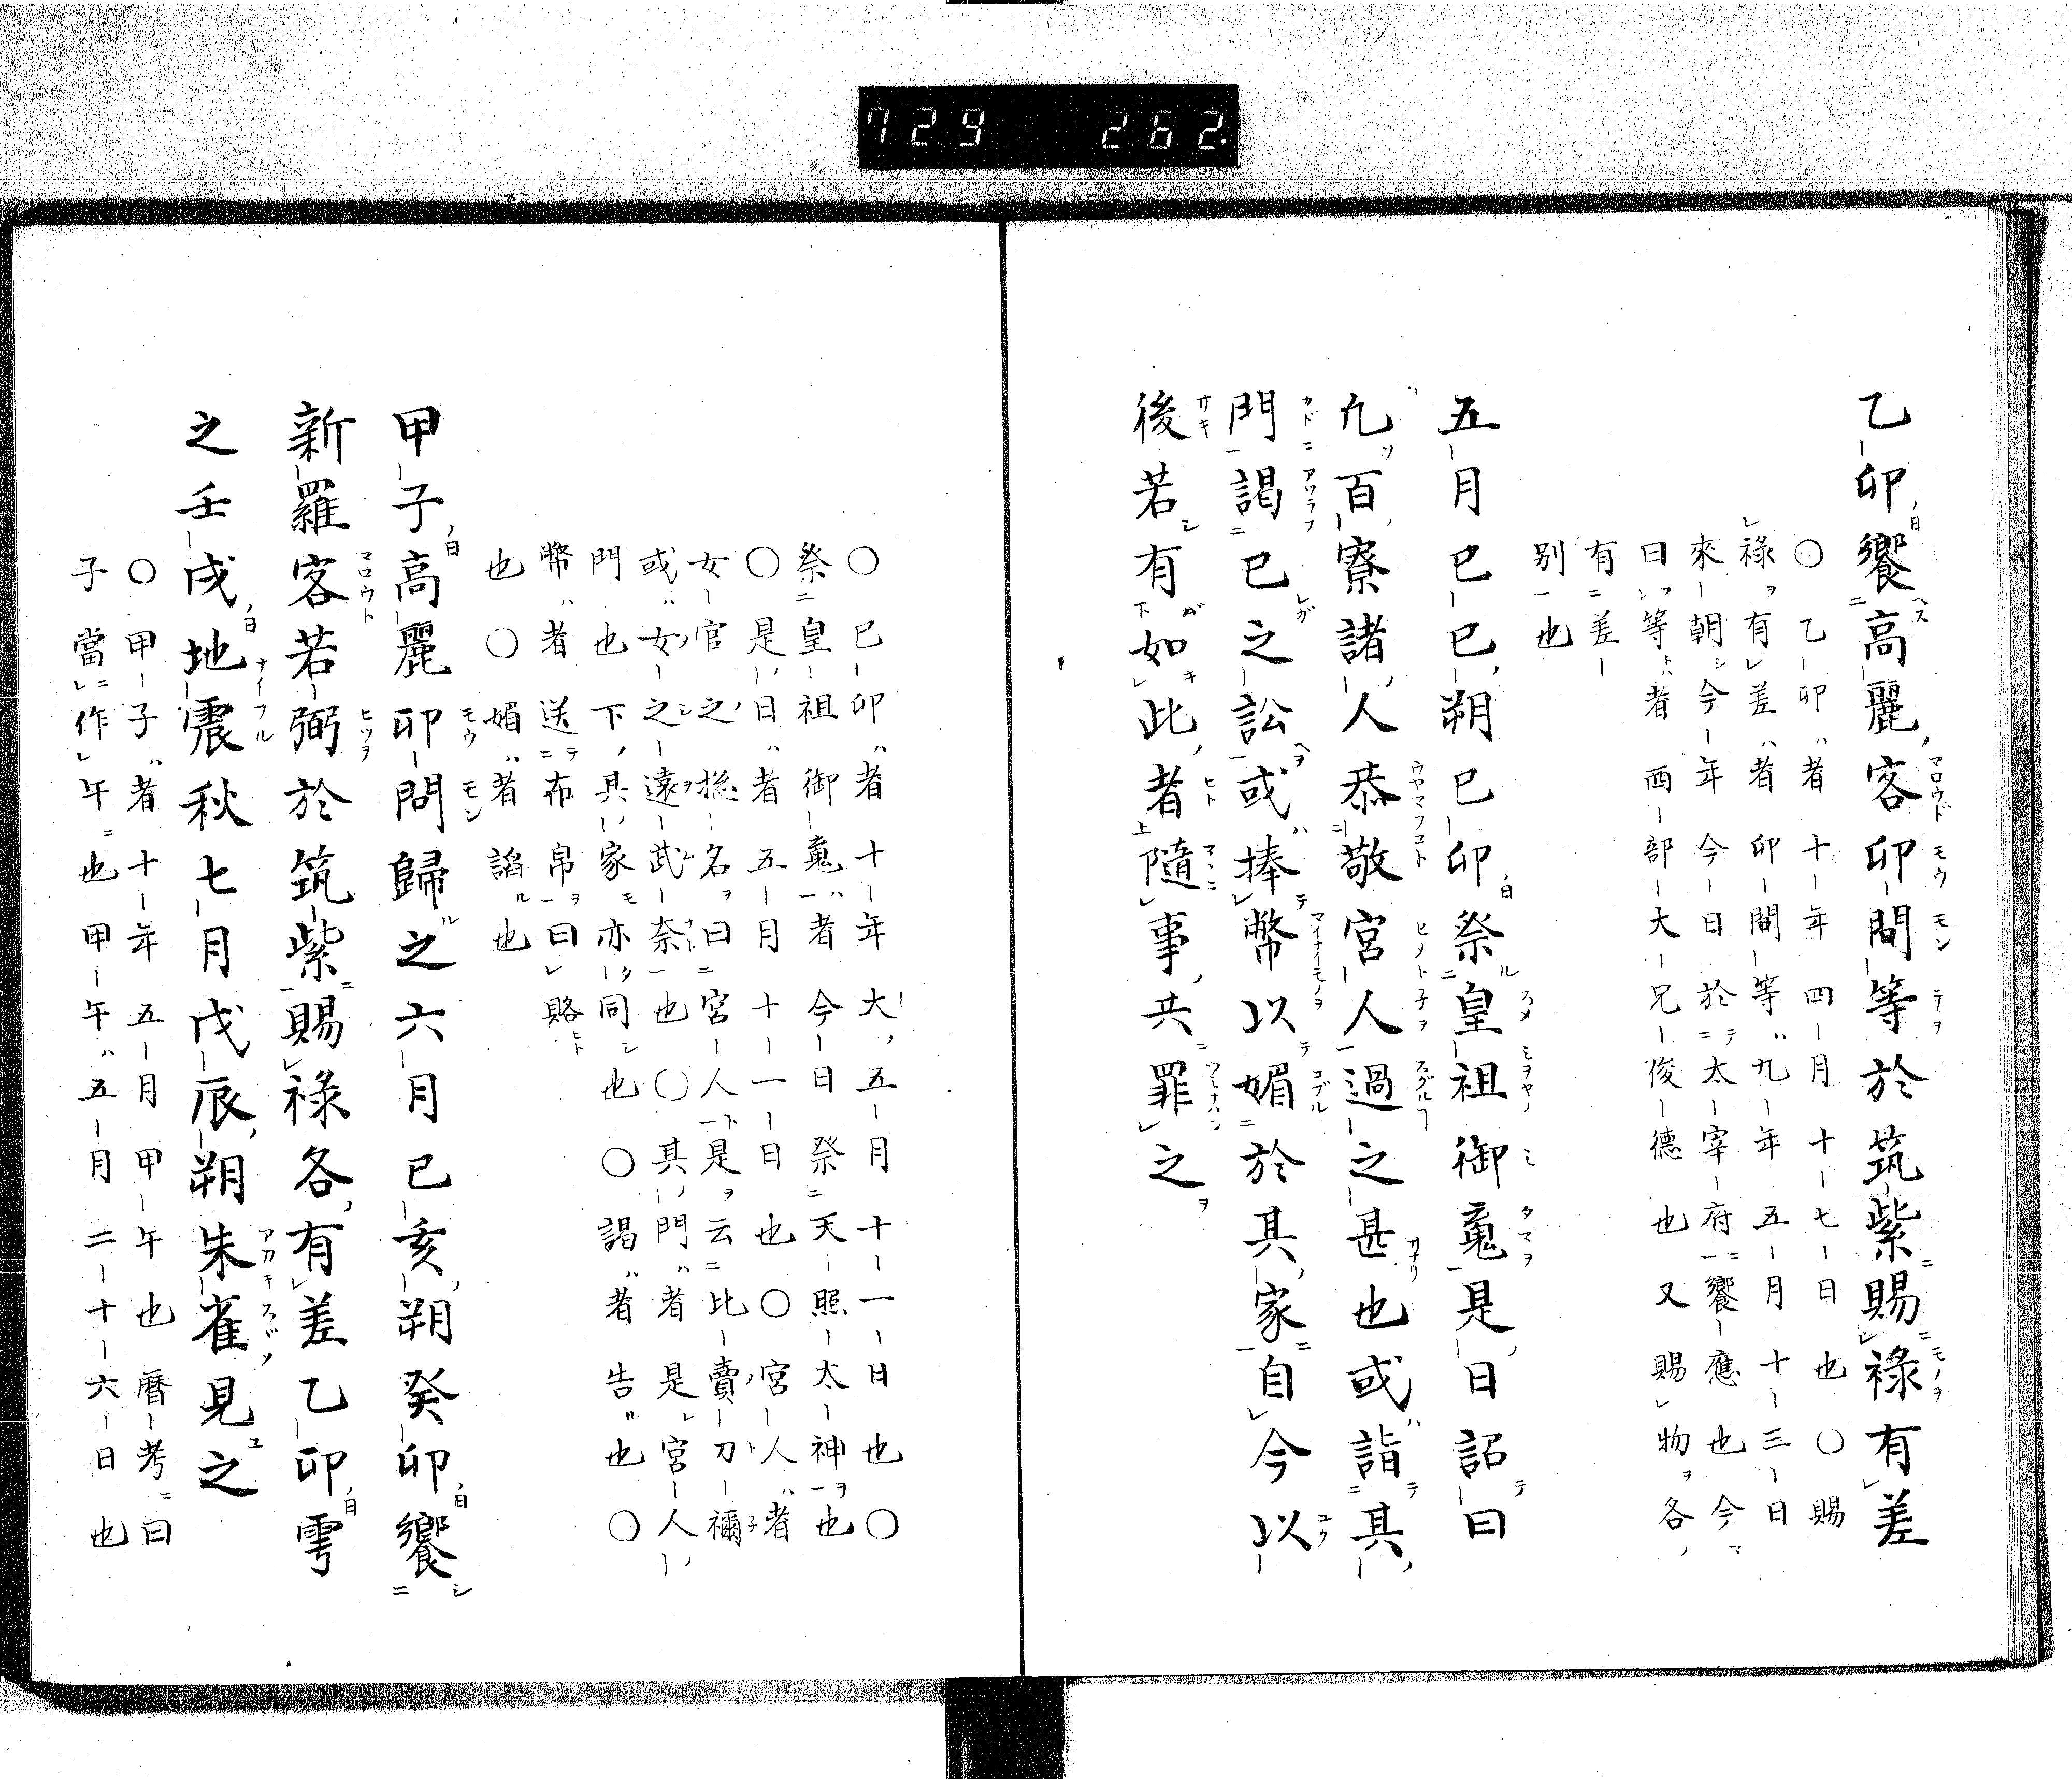 729 262.
乙卯饗高麗客卯問等於筑紫賜祿有差
〇乙卯者十年四月十七日也〇賜
祿有差者卯問等九年五月十三日
來朝今年今日於太宰府饗應也今
曰等者西部大兄俊德也又賜物各
有差
别也
五月己巳朔己卯祭皇祖御䰟是日詔曰
九百寮諸人恭敬宮人過之甚也或詣其
門謁己之訟或捧幣以媚於其家自今以
後若有如此者隨事共罪之
〇己卯者十年大五月十一日也〇
祭皇祖御䰟者今日祭天照太神也
〇是日者五月十一日也〇宮人者
女官之捴名曰宮人是云比賣刀禰
或女之遠武奈也〇其門者是宮人
門也下其家亦同也〇謁者告也〇
幣者送布帛曰賂
也〇媚者謟也
甲子高麗卯問歸之六月己亥朔癸卯饗
新羅客若弼於筑紫賜祿各有差乙卯雩
之壬戌地震秋七月戊辰朔朱雀見之
〇甲子者十年五月甲午也曆考曰
子當作午也甲午五月二十六日也